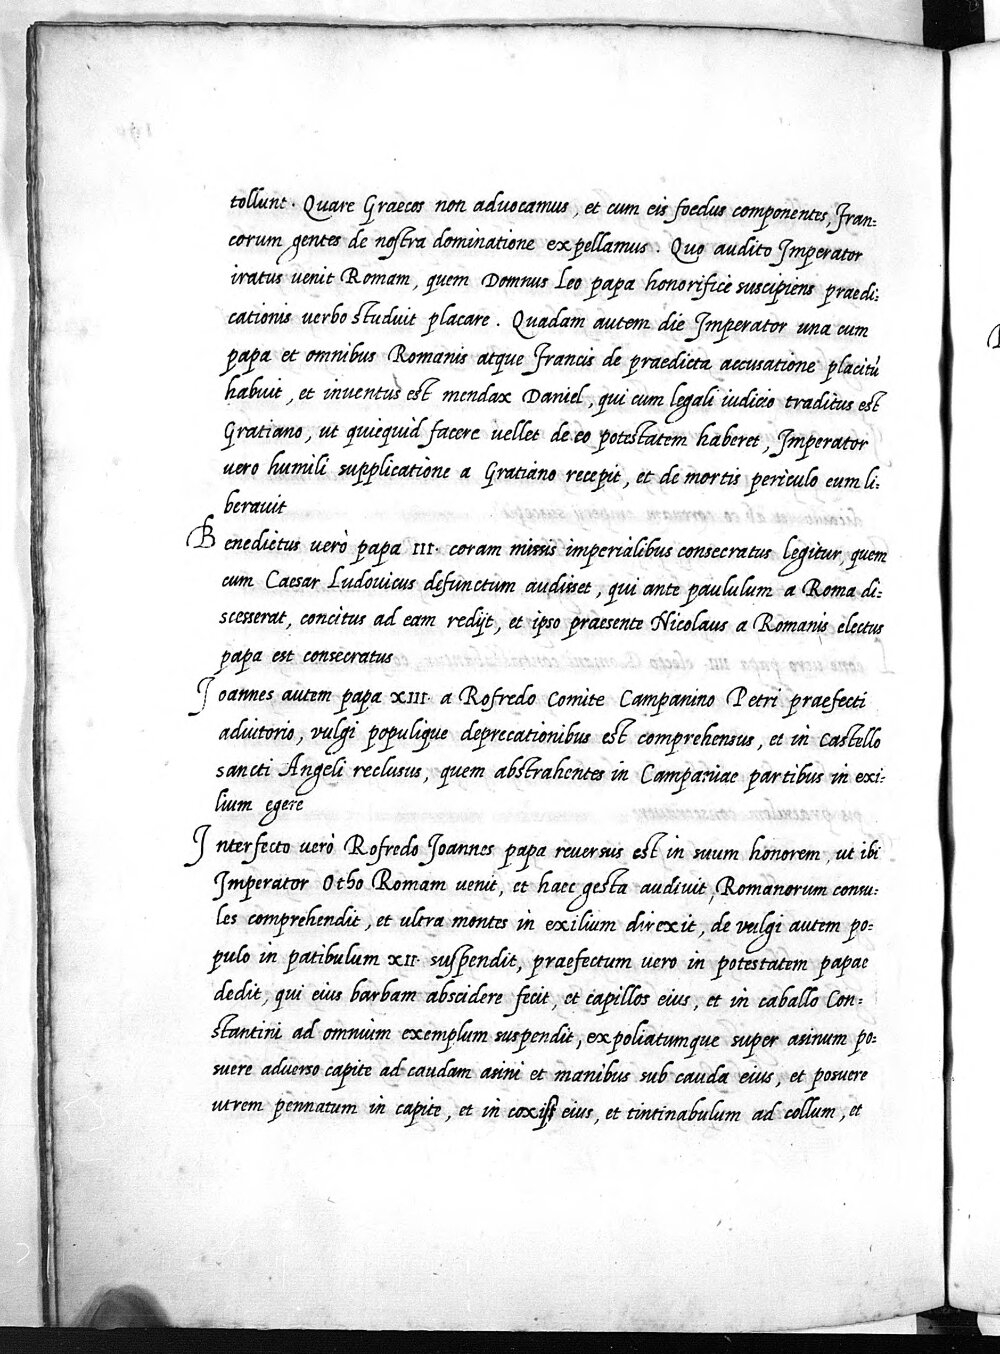 tollunt. Quare Graecos non aduocamus, et cum eis foedus componentes, Fran:
corum gentes de nostra dominatione expellamus. Quo audito Imperator
iratus uenit Romam, quem Domnus Leo papa honorifice suscipiens praedi:
cationis uerbo studuit placare. Quadam autem die Imperator una cum
papa et omnibus Romanis atque Francis de praedicta accusatione placitũ
habuit, et inuentus est mendax Daniel, qui cum legali iudicio traditus est
Gratiano, ut quicquid facere uellet de eo potestatem haberet, Imperator
uero humili supplicatione a Gratiano recepit, et de mortis periculo eum li:
berauit
Benedictus uerò papa III. coram missis imperialibus consecratus legitur, quem
cum Caesar Ludouicus defunctum audisset, qui ante paululum a Roma di:
scesserat, concitus ad eam redijt, et ipso praesente Nicolaus a Romanis electus
papa est consecratus
Ioannes autem papa XIII. a Rofredo Comite Campanino Petri praefecti
adiutorio, vulgi populique deprecationibus est comprehensus, et in Castello
sancti Angeli reclusus, quem abstrahentes in Campaniae partibus in exi:
lium egere
Interfecto uerò Rofredo Ioannes papa reuersus est in suum honorem, ut ibi
Imperator Otho Romam uenit, et haec gesta audiuit, Romanorum consu:
les comprehendit, et ultra montes in exilium direxit, de vulgi autem po:
pulo in patibulum XII. suspendit, praefectum uero in potestatem papae
dedit, qui eius barbam abscidere fecit, et capillos eius, et in caballo Con:
stantini ad omnium exemplum suspendit, expoliatumque super asinum po:
suere aduerso capite ad caudam asini et manibus sub cauda eius, et posuere
utrem pennatum in capite, et in coxis eius, et tintinabulum ad collum, et